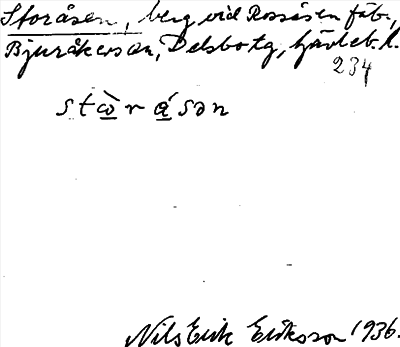 Storåsen, berg vid Rossåsen fäb.,
Bjuråkers sn, Delsbo tg, Gävleb. l.
234
stὼ̲r á̲sən
Nils Erik Eriksson 1936.